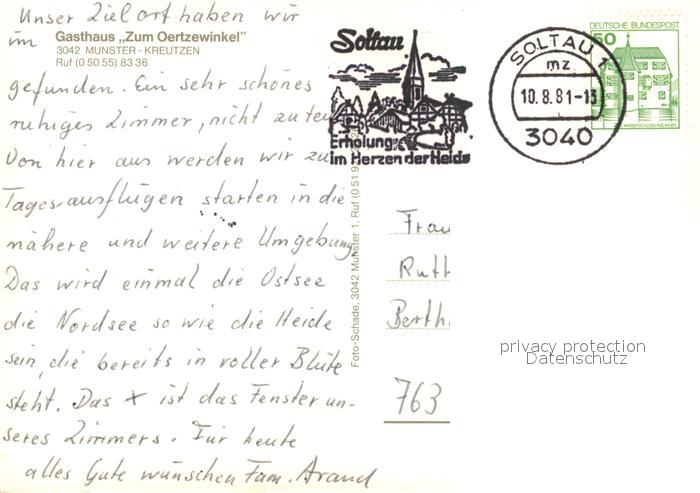 Unser Zielort haben wir
im Gasthaus „Zum Oertzewinkel"
3042 MUNSTER-KREUTZEN
Ruf (0 50 55) 83 36
gefunden. Ein sehr schönes
ruhiges Zimmer, nicht zu teu
Von hier aus werden wir zu
Tagesausflügen starten in die
nähere und weitere Umgebung
Das wird einmal die Ostsee
die Nordsee so wie die Heide
sein, die bereits in voller Blüte
steht. Das x ist das Fenster un-
seres Zimmers. Für heute
alles Gute wünschen Fam. Arand
Foto-Schade, 3042 Munster 1, Ruf (0 51 9
Soltau
Erholung
im Herzen der Heide
SOLTAU 1
mz
10.8.81-13
3040
DEUTSCHE BUNDESPOST
50
Frau
Ruth
Berth
763
privacy protection
Datenschutz